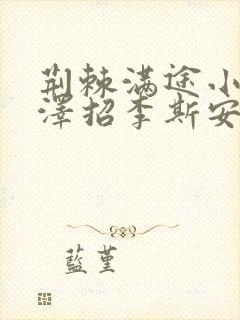 荆棘满途小
澤招李斯安
藍堇